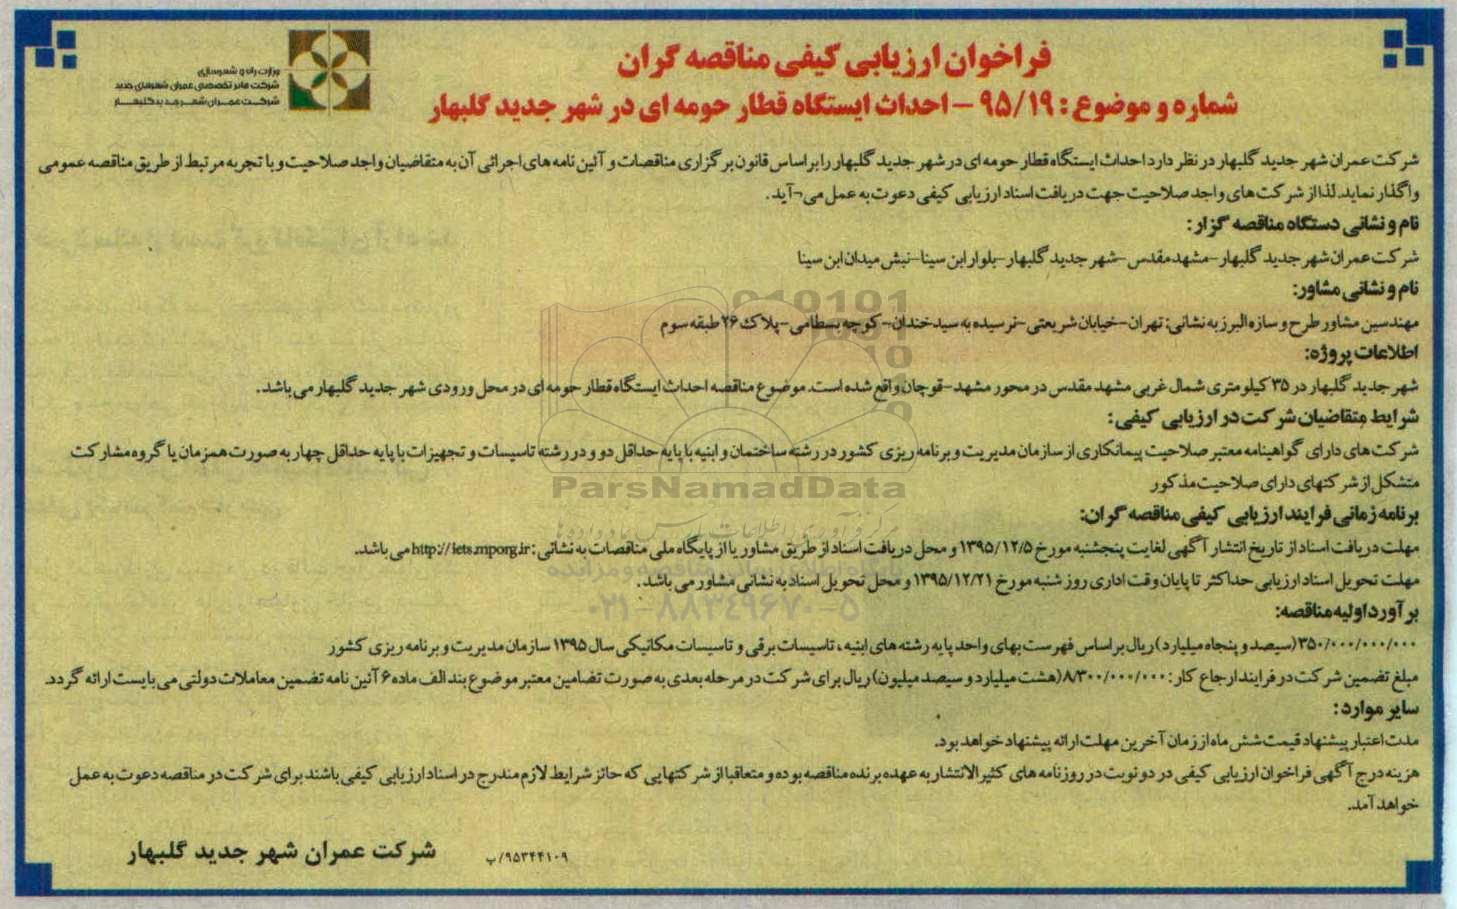 فراخوان ارزیابی کیفی مناقصه گران
شماره و موضوع : ۹۵/۱۹ – احداث ایستگاه قطار حومه ای در شهر جدید گلبهار
وزارت راه و شهرسازی
شرکت مادر تخصصی عمران شهرهای جدید
شرکت عمران شهر جدید گلبهار
شرکت عمران شهر جدید گلبهار در نظر دارد احداث ایستگاه قطار حومه ای در شهر جدید گلبهار را بر اساس قانون برگزاری مناقصات و آئین نامه های اجرائی آن به متقاضیان واجد صلاحیت و با تجربه مرتبط از طریق مناقصه عمومی
واگذار نماید. لذا از شرکت های واجد صلاحیت جهت دریافت اسناد ارزیابی کیفی دعوت به عمل می¬آید.
نام و نشانی دستگاه مناقصه گزار:
شرکت عمران شهر جدید گلبهار-مشهد مقدس -شهر جدید گلبهار-بلوار ابن سینا-نبش میدان ابن سینا
نام و نشانی مشاور:
مهندسین مشاور طرح و سازه البرز به نشانی: تهران-خیابان شریعتی-نرسیده به سید خندان- کوچه بسطامی-پلاک ۲۶ طبقه سوم
اطلاعات پروژه:
شهر جدید گلبهار در ۳۵ کیلومتری شمال غربی مشهد مقدس در محور مشهد-قوچان واقع شده است. موضوع مناقصه احداث ایستگاه قطار حومه ای در محل ورودی شهر جدید گلبهار می باشد.
شرایط متقاضیان شرکت در ارزیابی کیفی:
شرکت های دارای گواهینامه معتبر صلاحیت پیمانکاری از سازمان مدیریت و برنامه ریزی کشور در رشته ساختمان و ابنیه با پایه حداقل دو و در رشته تاسیسات و تجهیزات با پایه حداقل چهار به صورت همزمان یا گروه مشارکت
متشکل از شرکتهای دارای صلاحیت مذکور
برنامه زمانی فرایند ارزیابی کیفی مناقصه گران:
مهلت دریافت اسناد از تاریخ انتشار آگهی لغایت پنجشنبه مورخ ۱۳۹۵/۱۲/۵ و محل دریافت اسناد از طریق مشاور یا از پایگاه ملی مناقصات به نشانی : http://iets.mporg.ir می باشد.
مهلت تحویل اسناد ارزیابی حداکثر تا پایان وقت اداری روز شنبه مورخ ۱۳۹۵/۱۲/۲۱ و محل تحویل اسناد به نشانی مشاور می باشد.
برآورد اولیه مناقصه:
۳۵۰/۰۰۰/۰۰۰/۰۰۰(سیصد و پنجاه میلیارد) ریال بر اساس فهرست بهای واحد پایه رشته های ابنیه ، تاسیسات برقی و تاسیسات مکانیکی سال ۱۳۹۵ سازمان مدیریت و برنامه ریزی کشور
مبلغ تضمین شرکت در فرایند ارجاع کار: ۸/۳۰۰/۰۰۰/۰۰۰(هشت میلیارد و سیصد میلیون) ریال برای شرکت در مرحله بعدی به صورت تضامین معتبر موضوع بند الف ماده ۶ آئین نامه تضمین معاملات دولتی می بایست ارائه گردد.
سایر موارد:
مدت اعتبار پیشنهاد قیمت شش ماه از زمان آخرین مهلت ارائه پیشنهاد خواهد بود.
هزینه درج آگهی فراخوان ارزیابی کیفی در دو نوبت در روزنامه های کثیرالانتشار به عهده برنده مناقصه بوده و متعاقبا از شرکتهایی که حائز شرایط لازم مندرج در اسناد ارزیابی کیفی باشند برای شرکت در مناقصه دعوت به عمل
خواهد آمد.
۹۵۳۴۴۱۰۹/پ
شرکت عمران شهر جدید گلبهار
ParsNamadData
۰۲۱-۸۸۳۴۹۶۷۰-۵